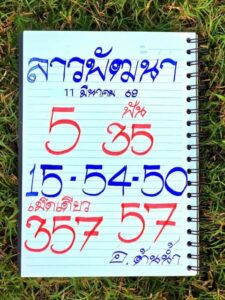 ลาวพัฒนา
11 มีนาคม 69
5 ฟัน 35
15-54-50
เม็ดเดียว
357 57
อ.ต้นน้ำ